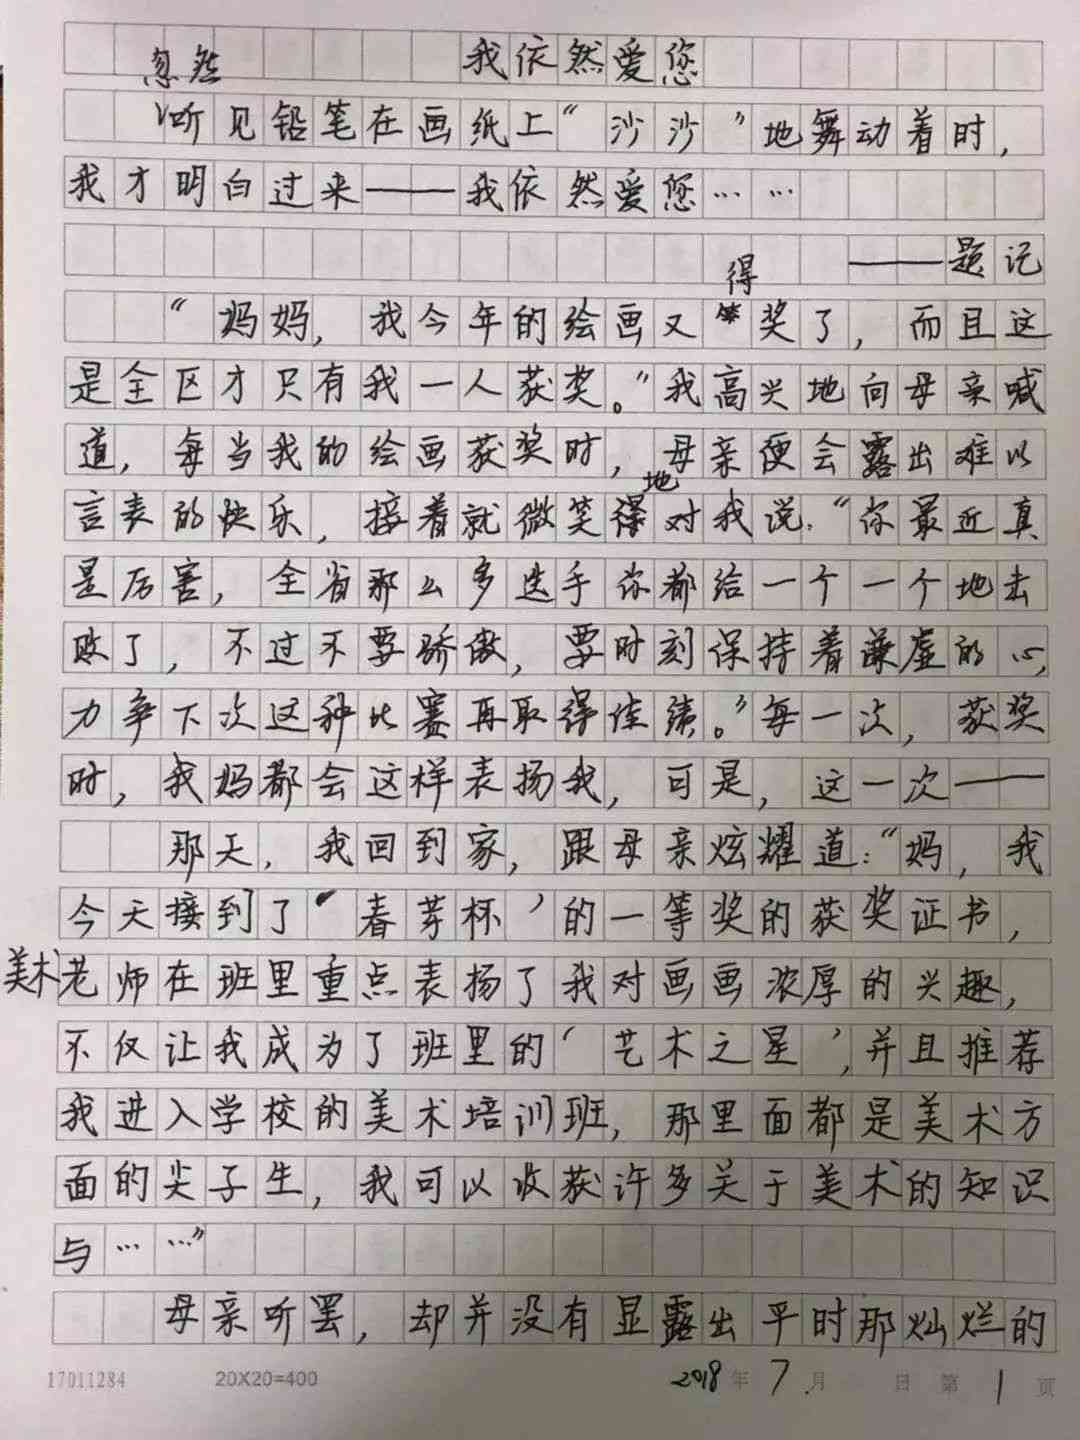 我依然爱您
忽然
听见铅笔在画纸上“沙沙”地舞动着时，
我才明白过来——我依然爱您……
——题记
得
“妈妈，我今年的绘画又奖了，而且这
是全区才只有我一人获奖。”我高兴地向母亲喊
道，每当我的绘画获奖时，母亲便会露出难以
地
言表的快乐，接着就微笑得对我说：“你最近真
是厉害，全省那么多选手你都给一个一个地去
败了，不过不要骄傲，要时刻保持着谦虚的心，
力争下次这种比赛再取得佳绩。”每一次，获奖
时，我妈都会这样表扬我，可是，这一次——
那天，我回到家，跟母亲炫耀道：“妈，我
今天接到了‘春芽杯’的一等奖的获奖证书，
美术老师在班里重点表扬了我对画画浓厚的兴趣，
不仅让我成为了班里的‘艺术之星’，并且推荐
我进入学校的美术培训班，那里面都是美术方
面的尖子生，我可以收获许多关于美术的知识
与……”
母亲听罢，却并没有显露出平时那灿烂的
17011284 20X20=400 2018年7月 日 第1页